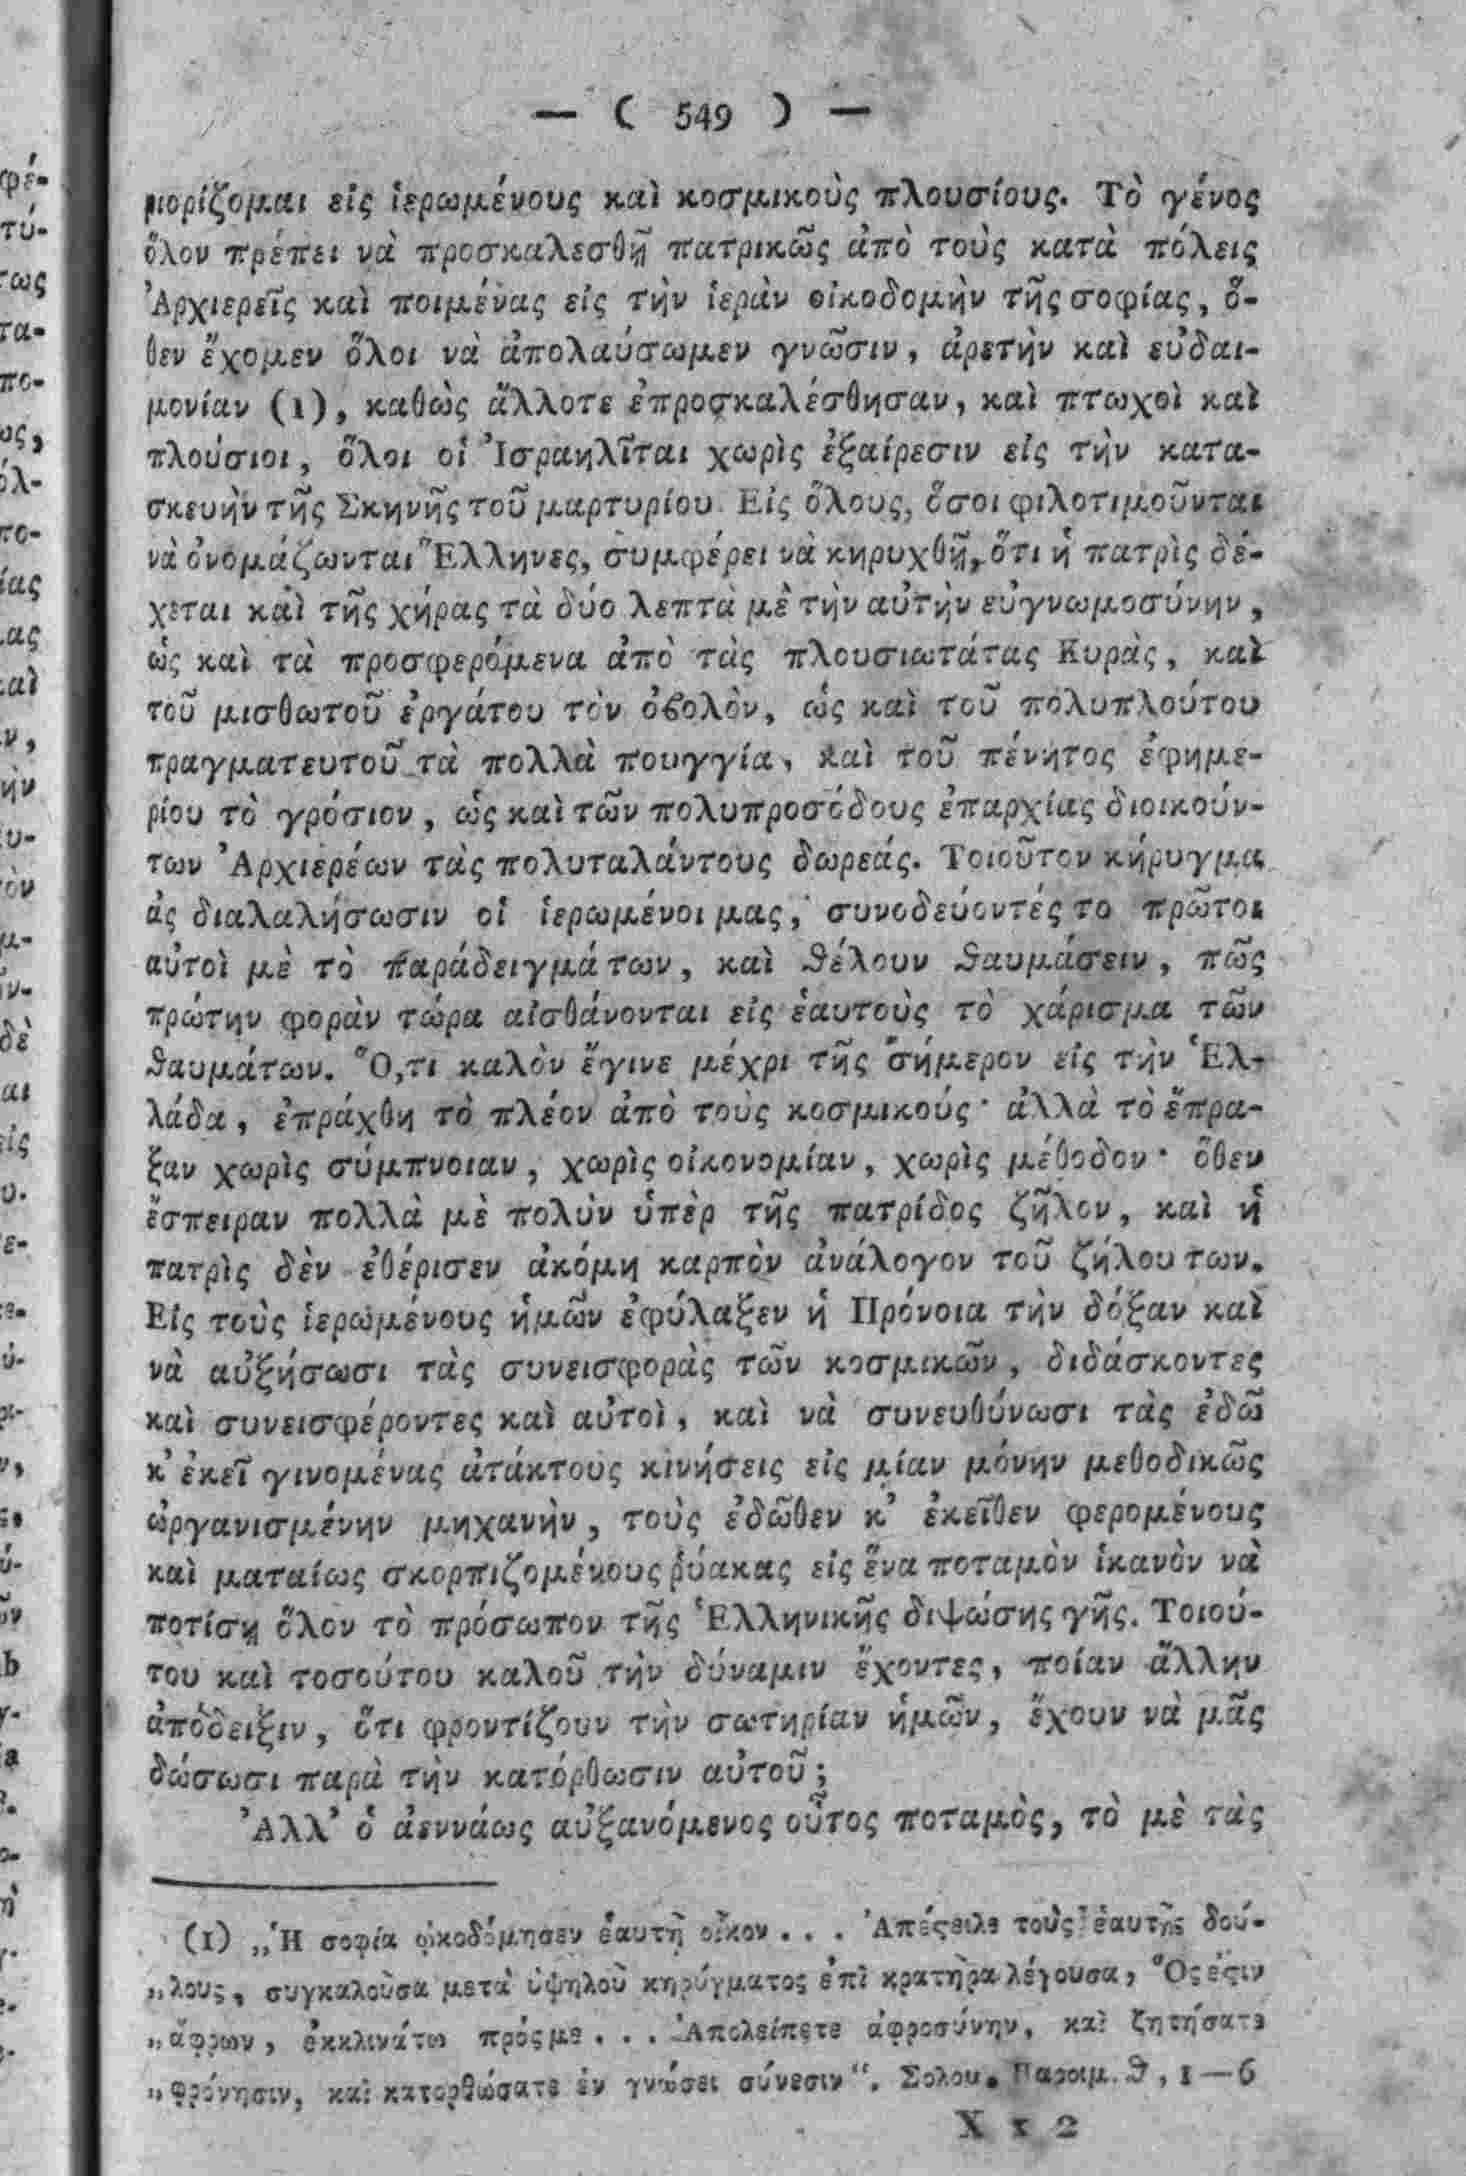 — ( 549 ) —
ριορίζομαι εἰς ἱερωμένους καὶ κοσμικοὺς πλουσίους. Τὸ γένος
ὅλον πρέπει νὰ προσκαλεσθῇ πατρικῶς ἀπὸ τοὺς κατὰ πόλεις
Ἀρχιερεῖς καὶ ποιμένας εἰς τὴν ἱερὰν οἰκοδομὴν τῆς σοφίας, ὅ-
θεν ἔχομεν ὅλοι νὰ ἀπολαύσωμεν γνῶσιν, ἀρετὴν καὶ εὐδαι-
μονίαν (1), καθὼς ἄλλοτε ἐπροσκαλέσθησαν, καὶ πτωχοὶ καὶ
πλούσιοι, ὅλοι οἱ Ἰσραηλῖται χωρὶς ἐξαίρεσιν εἰς τὴν κατα-
σκευὴν τῆς Σκηνῆς τοῦ μαρτυρίου. Εἰς ὅλους, ὅσοι φιλοτιμοῦνται
νὰ ὀνομάζωνται Ἕλληνες, συμφέρει νὰ κηρυχθῇ, ὅτι ἡ πατρὶς δέ-
χεται καὶ τῆς χήρας τὰ δύο λεπτὰ μὲ τὴν αὐτὴν εὐγνωμοσύνην,
ὡς καὶ τὰ προσφερόμενα ἀπὸ τὰς πλουσιωτάτας Κυρὰς, καὶ
τοῦ μισθωτοῦ ἐργάτου τὸν ὀϐολὸν, ὡς καὶ τοῦ πολυπλούτου
πραγματευτοῦ τὰ πολλὰ πουγγία, καὶ τοῦ πένητος ἐφημε-
ρίου τὸ γρόσιον, ὡς καὶ τῶν πολυπροσόδους ἐπαρχίας διοικούν-
των Ἀρχιερέων τὰς πολυταλάντους δωρεάς. Τοιοῦτον κήρυγμα
ἂς διαλαλήσωσιν οἱ ἱερωμένοι μας, συνοδεύοντές το πρῶτοι
αὐτοὶ μὲ τὸ παράδειγμά των, καὶ ϑέλουν ϑαυμάσειν, πῶς
πρώτην φορὰν τώρα αἰσθάνονται εἰς ἑαυτοὺς τὸ χάρισμα τῶν
ϑαυμάτων. Ὅ,τι καλὸν ἔγινε μέχρι τῆς σήμερον εἰς τὴν Ἑλ-
λάδα, ἐπράχθη τὸ πλέον ἀπὸ τοὺς κοσμικούς· ἀλλὰ τὸ ἔπρα-
ξαν χωρὶς σύμπνοιαν, χωρὶς οἰκονομίαν, χωρὶς μέθοδον· ὅθεν
ἔσπειραν πολλὰ μὲ πολὺν ὑπὲρ τῆς πατρίδος ζῆλον, καὶ ἡ
πατρὶς δὲν ἐθέρισεν ἀκόμη καρπὸν ἀνάλογον τοῦ ζήλου των.
Εἰς τοὺς ἱερωμένους ἡμῶν ἐφύλαξεν ἡ Πρόνοια τὴν δόξαν καὶ
νὰ αὐξήσωσι τὰς συνεισφορὰς τῶν κοσμικῶν, διδάσκοντες
καὶ συνεισφέροντες καὶ αὐτοὶ, καὶ νὰ συνευθύνωσι τὰς ἐδῶ
κ’ ἐκεῖ γινομένας ἀτάκτους κινήσεις εἰς μίαν μόνην μεθοδικῶς
ὠργανισμένην μηχανὴν, τοὺς ἐδῶθεν κ’ ἐκεῖθεν φερομένους
καὶ ματαίως σκορπιζομένους ῥύακας εἰς ἕνα ποταμὸν ἱκανὸν νὰ
ποτίσῃ ὅλον τὸ πρόσωπον τῆς Ἑλληνικῆς διψώσης γῆς. Τοιού-
του καὶ τοσούτου καλοῦ τὴν δύναμιν ἔχοντες, ποίαν ἄλλην
ἀπόδειξιν, ὅτι φροντίζουν τὴν σωτηρίαν ἡμῶν, ἔχουν νὰ μᾶς
δώσωσι παρὰ τὴν κατόρθωσιν αὐτοῦ;
Ἀλλ’ ὁ ἀεννάως αὐξανόμενος οὗτος ποταμὸς, τὸ μὲ τὰς
(1) „Ἡ σοφία ᾠκοδόμησεν ἑαυτῇ οἶκον . . . Ἀπέϛειλε τοὺς ἑαυτῆς δού-
„λους, συγκαλοῦσα μετὰ ὑψηλοῦ κηρύγματος ἐπὶ κρατῆρα λέγουσα, Ὅς ἐϛιν
„ἄφρων, ἐκκλινάτω πρός με . . . Ἀπολείπετε ἀφροσύνην, καὶ ζητήσατε
„φρόνησιν, καὶ κατορθώσατε ἐν γνώσει σύνεσιν“. Σολομ. Παροιμ. ϑ, 1—6
X x 2